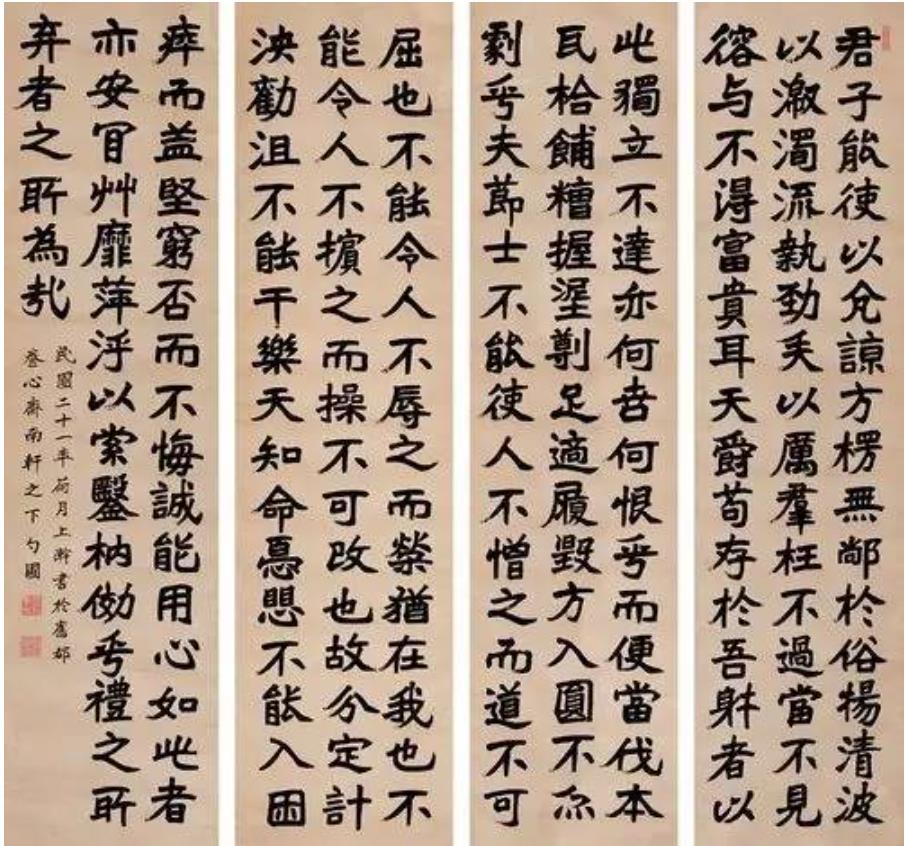 君子能使以兊諒方楞無鄙於俗揚清波
以激濁流執勁矢以厲羣枉不過當不見
傛与不得富貴耳天爵苟存於吾躰者以
此獨立不達亦何苦何恨乎而便當伐本
瓦枱餔糟握埿剸足適履毀方入圓不尒
劇乎夫莭士不能使人不憎之而道不可
屈也不能令人不辱之而榮猶在我也不
能令人不擯之而操不可改也故分定計
決勸沮不能干樂天知命憂愳不能入困
瘁而益堅窮否而不悔誠能用心如此者
亦安肎艸靡萍浮以索鑿枘俲乎禮之所
弃者之所為哉
民國二十一年荷月上澣書於舊都
養心齋南軒之下勺園